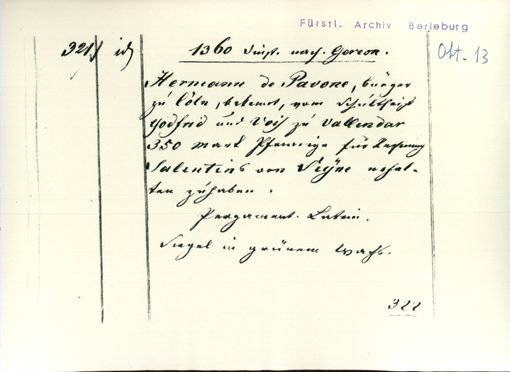 Fürstl. Archiv Berleburg
Okt. 13
321 id 1360 Dinst. nach Gereon.
Hermann de Pavone, bürger
zu Cöln, bekennt, vom Schultheis
Godfrid und Vois zu Vallendar
350 mark Pfennige für Rechnung
Salentins von Seÿne erhal-
ten zuhaben.
Pergament. Latein.
Siegel in grünem Wachs.
322